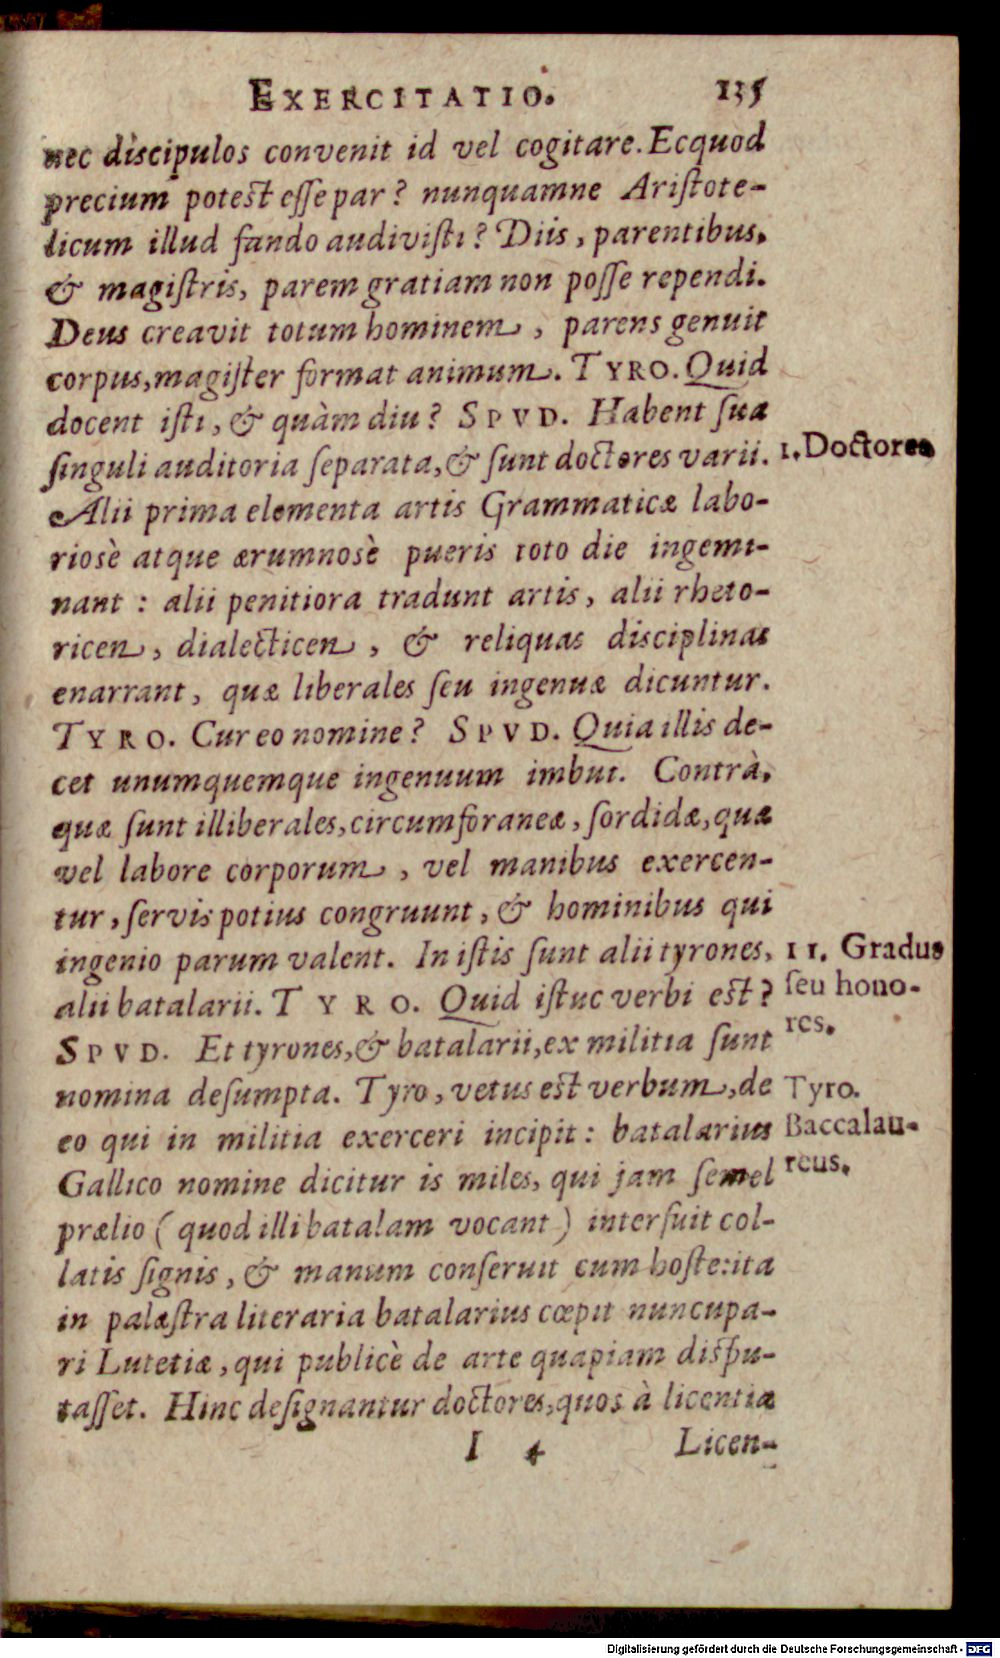 EXERCITATIO. 135
nec discipulos convenit id vel cogitare. Ecquod
precium potest esse par? nunquamne Aristote-
licum illud fando audivisti? Diis, parentibus,
& magistris, parem gratiam non posse rependi.
Deus creavit totum hominem, parens genuit
corpus, magister format animum. TYRO. Quid
docent isti, & quàm diu? SPVD. Habent sua
singuli auditoria separata, & sunt doctores varii.
1. Doctores
Alii prima elementa artis Grammaticæ labo-
riosè atque ærumnosè pueris toto die ingemi-
nant: alii penitiora tradunt artis, alii rheto-
ricen, dialecticen, & reliquas disciplinas
enarrant, quæ liberales seu ingenuæ dicuntur.
TYRO. Cur eo nomine? SPVD. Quia illis de-
cet unumquemque ingenuum imbui. Contrà,
quæ sunt illiberales, circumforaneæ, sordidæ, quæ
vel labore corporum, vel manibus exercen-
tur, servis potius congruunt, & hominibus qui
ingenio parum valent. In istis sunt alii tyrones,
11. Gradus
seu hono-
res.
alii batalarii. TYRO. Quid istuc verbi est?
SPVD. Et tyrones, & batalarii, ex militia sunt
nomina desumpta. Tyro, vetus est verbum, de
Tyro.
eo qui in militia exerceri incipit: batalarius
Baccalau-
reus.
Gallico nomine dicitur is miles, qui jam semel
prælio (quod illi batalam vocant) interfuit col-
latis signis, & manum conseruit cum hoste: ita
in palæstra literaria batalarius cœpit nuncupa-
ri Lutetiæ, qui publicè de arte quapiam dispu-
tasset. Hinc designantur doctores, quos à licentia
I 4 Licen-
Digitalisierung gefördert durch die Deutsche Forschungsgemeinschaft - DFG